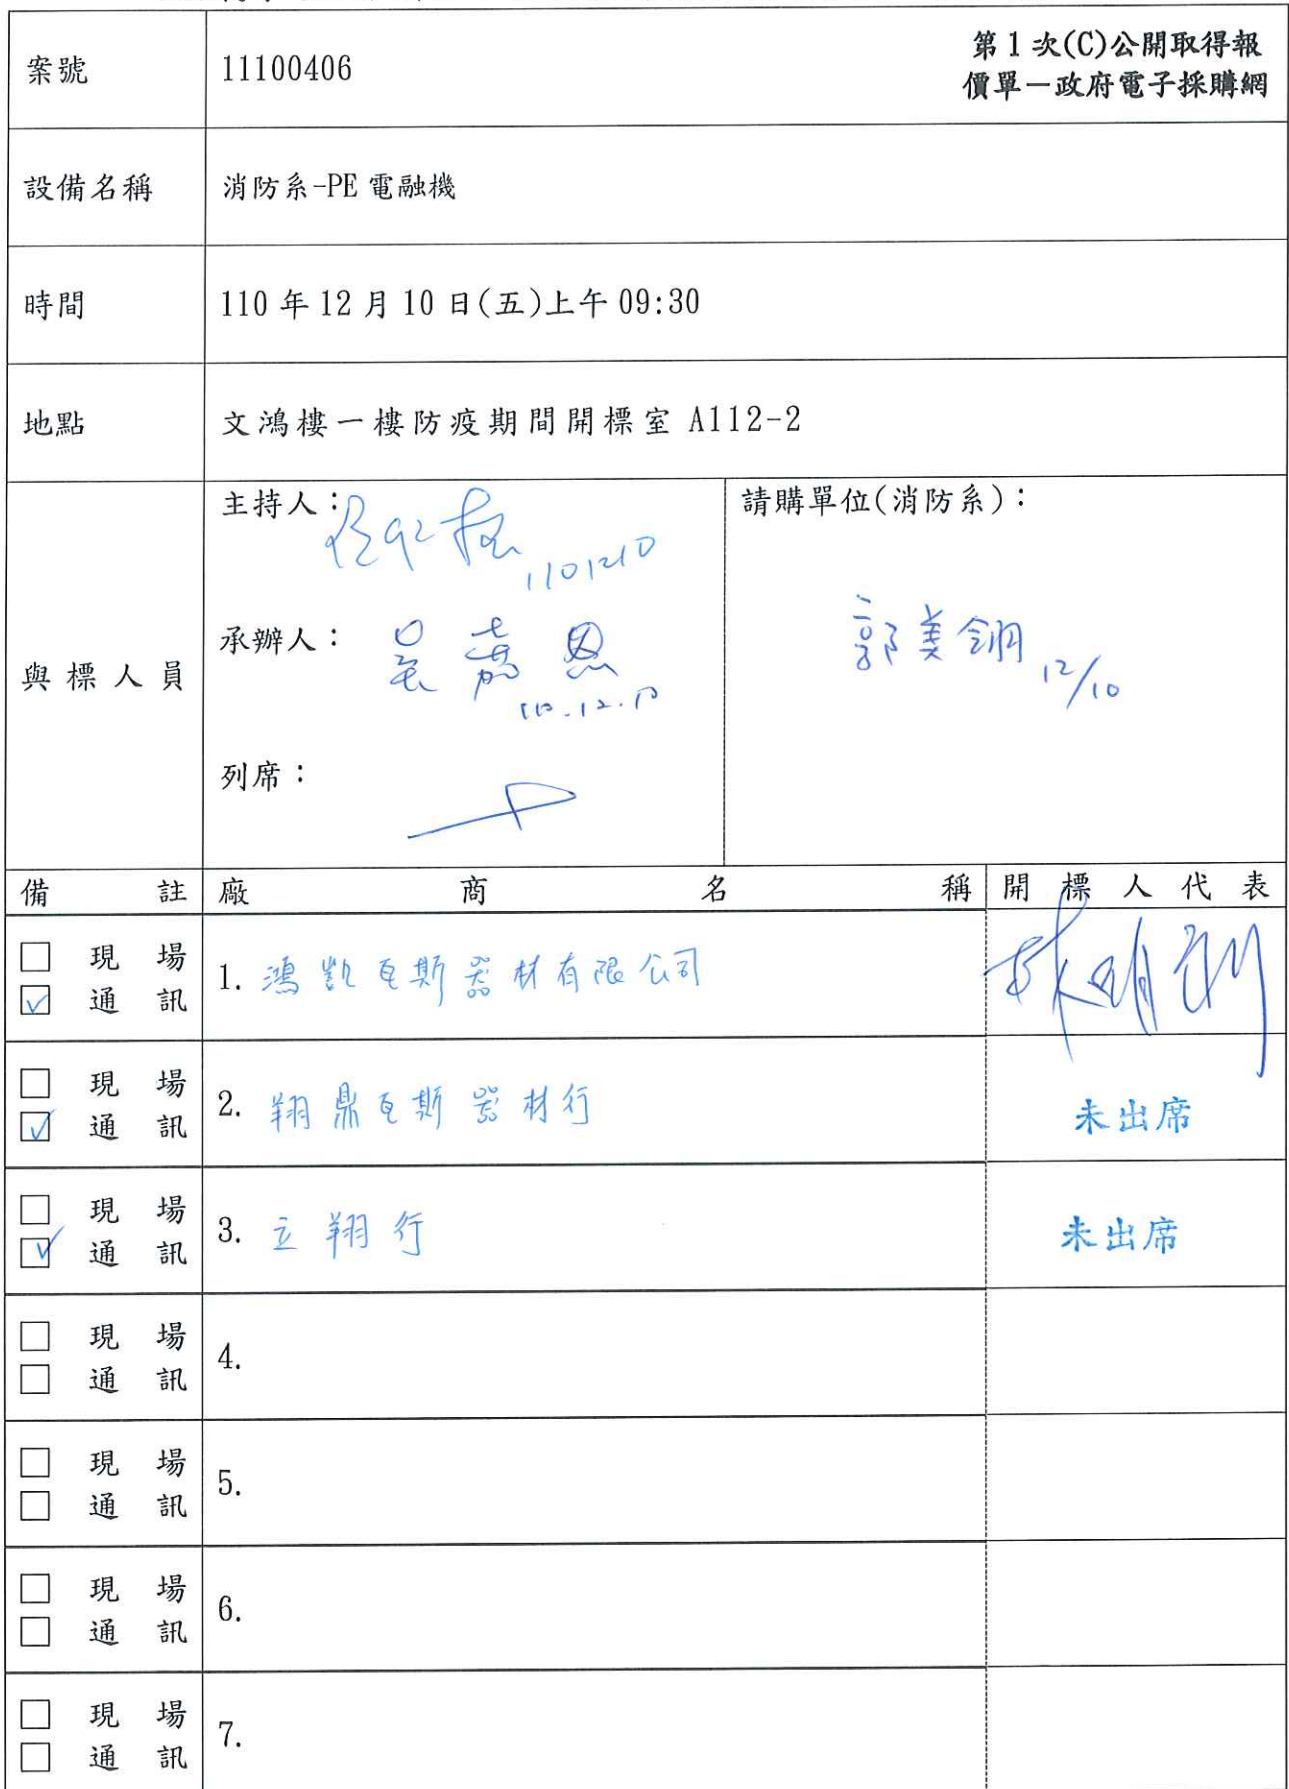 案號 11100406 第1次(C)公開取得報
價單－政府電子採購網
設備名稱 消防系-PE電融機
時間 110年12月10日(五)上午09:30
地點 文鴻樓一樓防疫期間開標室 A112-2
與標人員
主持人：
1101210
承辦人：吳嘉恩
110.12.10
列席：
請購單位(消防系)：
郭美
12/10
備註 廠商名稱 開標人代表
□ 現場
☑ 通訊
1. 鴻凱瓦斯器材有限公司
□ 現場
☑ 通訊
2. 翔鼎瓦斯器材行 未出席
□ 現場
☑ 通訊
3. 立翔行 未出席
□ 現場
□ 通訊
4.
□ 現場
□ 通訊
5.
□ 現場
□ 通訊
6.
□ 現場
□ 通訊
7.